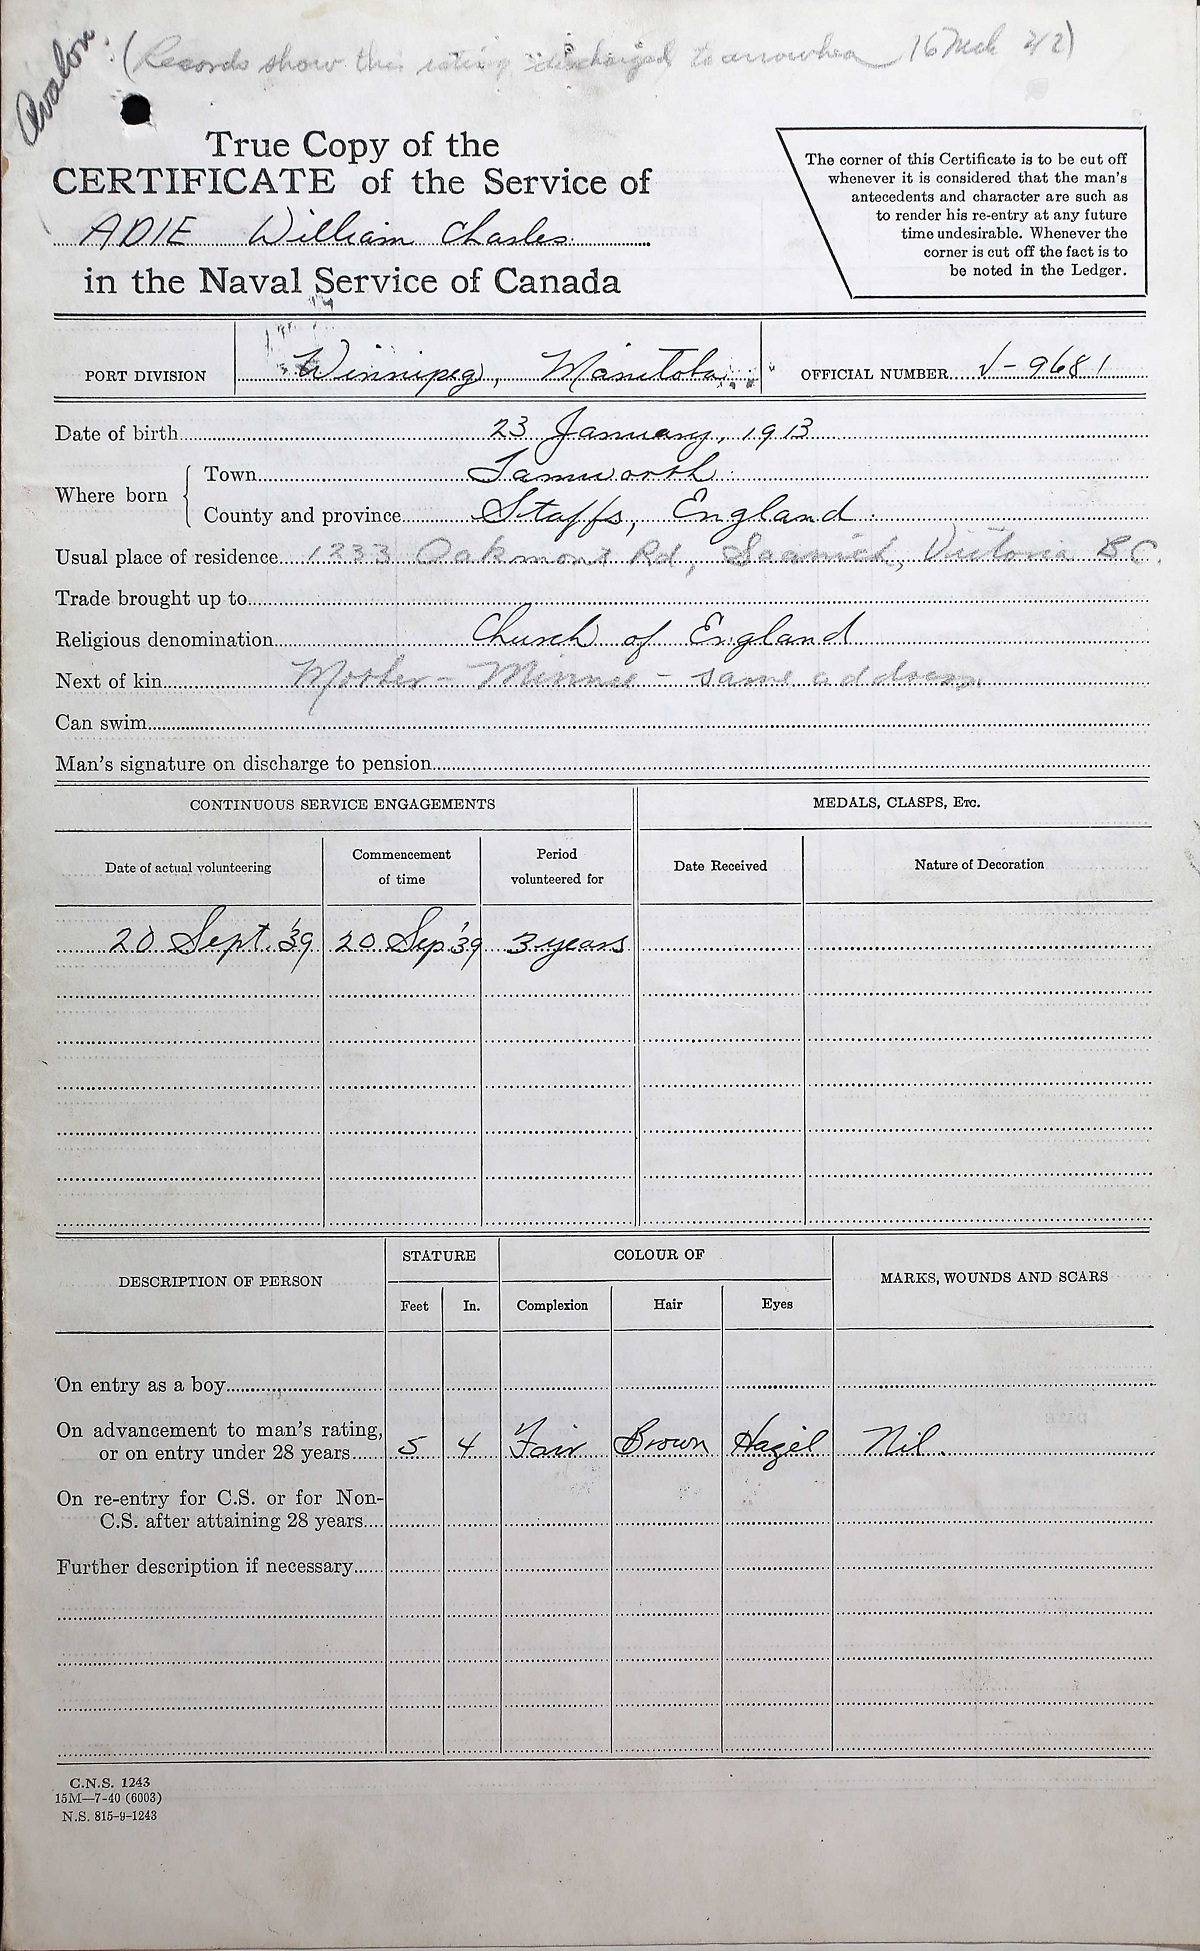 Avalon: (Records show this rating discharged to arrowhea 16 Mch 42)
True Copy of the
CERTIFICATE of the Service of
ADIE William Charles
in the Naval Service of Canada
The corner of this Certificate is to be cut off
whenever it is considered that the man's
antecedents and character are such as
to render his re-entry at any future
time undesirable. Whenever the
corner is cut off the fact is to
be noted in the Ledger.
PORT DIVISION Winnipeg, Manitoba OFFICIAL NUMBER V-9681
Date of birth 23 January, 1913
Where born
Town Tamworth
County and province Staffs, England
Usual place of residence 1233 Oakmont Rd, Saanich, Victoria BC.
Trade brought up to
Religious denomination Church of England
Next of kin Mother - Minnie - same address
Can swim
Man's signature on discharge to pension
CONTINUOUS SERVICE ENGAGEMENTS MEDALS, CLASPS, Etc.
Date of actual volunteering Commencement of time Period volunteered for Date Received Nature of Decoration
20 Sept. '39 20 Sep '39 3 years
DESCRIPTION OF PERSON STATURE COLOUR OF MARKS, WOUNDS AND SCARS
Feet In. Complexion Hair Eyes
On entry as a boy
On advancement to man's rating,
or on entry under 28 years 5 4 Fair Brown Hazel Nil.
On re-entry for C.S. or for Non-
C.S. after attaining 28 years
Further description if necessary
C.N.S. 1243
15M—7-40 (6003)
N.S. 815-9-1243